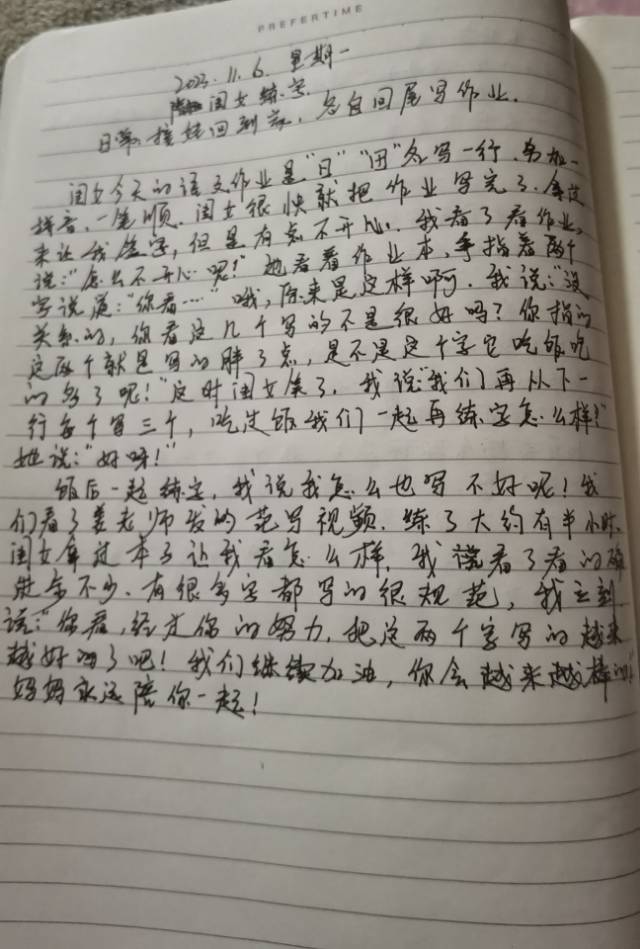 PREFERTIME
2023.11.6. 星期一
闺女练字
日常接娃回到家，各自回屋写作业.
闺女今天的语文作业是"日""田"各写一行.另加一
拼音、一笔顺.闺女很快就把作业写完了.拿过
来让我签字，但是有点不开心.我看了看作业，
说:"怎么不开心呢!"她看着作业本，手指着两个
字说道:"你看……"哦，原来是这样啊.我说:"没
关系的，你看这几个写的不是很好吗?你指的
这两个就是写的胖了点，是不是这个字它吃饭吃
的多了呢!"这时闺女笑了.我说"我们再从下一
行每个写三个，吃过饭我们一起再练字怎么样?"
她说:"好呀!"
饭后一起练字，我说我怎么也写不好呢!我
们看了姜老师发的范写视频.练了大约有半小时.
闺女拿过本子让我看怎么样，我看了看的确
进步不少.有很多字都写的很规范，我立刻
说:"你看，经过你的努力，把这两个字写的越来
越好了吧!我们继续加油，你会越来越棒的!"
妈妈永远陪你一起!